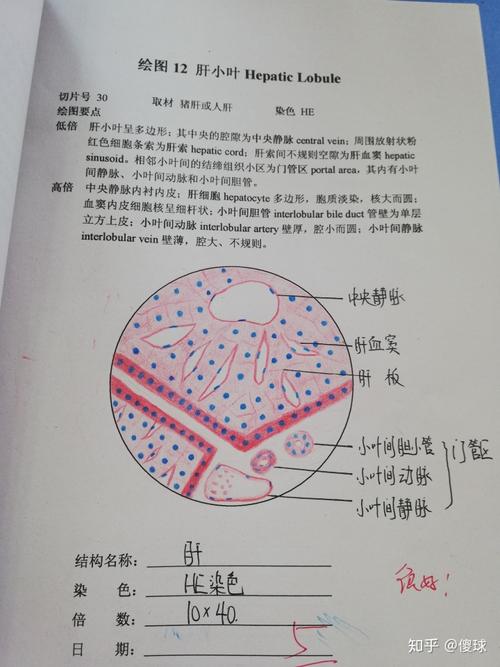 绘图 12 肝小叶 Hepatic Lobule
切片号 30 取材 猪肝或人肝 染色 HE
绘图要点
低倍 肝小叶呈多边形；其中央的腔隙为中央静脉 central vein；周围放射状粉
红色细胞条索为肝索 hepatic cord；肝索间不规则空隙为肝血窦 hepatic
sinusoid。相邻小叶间的结缔组织小区为门管区 portal area，其内有小叶
间静脉、小叶间动脉和小叶间胆管。
高倍 中央静脉内衬内皮；肝细胞 hepatocyte 多边形，胞质淡染，核大而圆；
血窦内皮细胞核呈细杆状；小叶间胆管 interlobular bile duct 管壁为单层
立方上皮；小叶间动脉 interlobular artery 壁厚，腔小而圆；小叶间静脉
interlobular vein 壁薄，腔大、不规则。
中央静脉
肝血窦
肝板
小叶间胆小管
小叶间动脉
小叶间静脉
门管区
结构名称：肝
染 色：HE染色
倍 数：10×40.
日 期：
很好！
5
知乎 @傻球